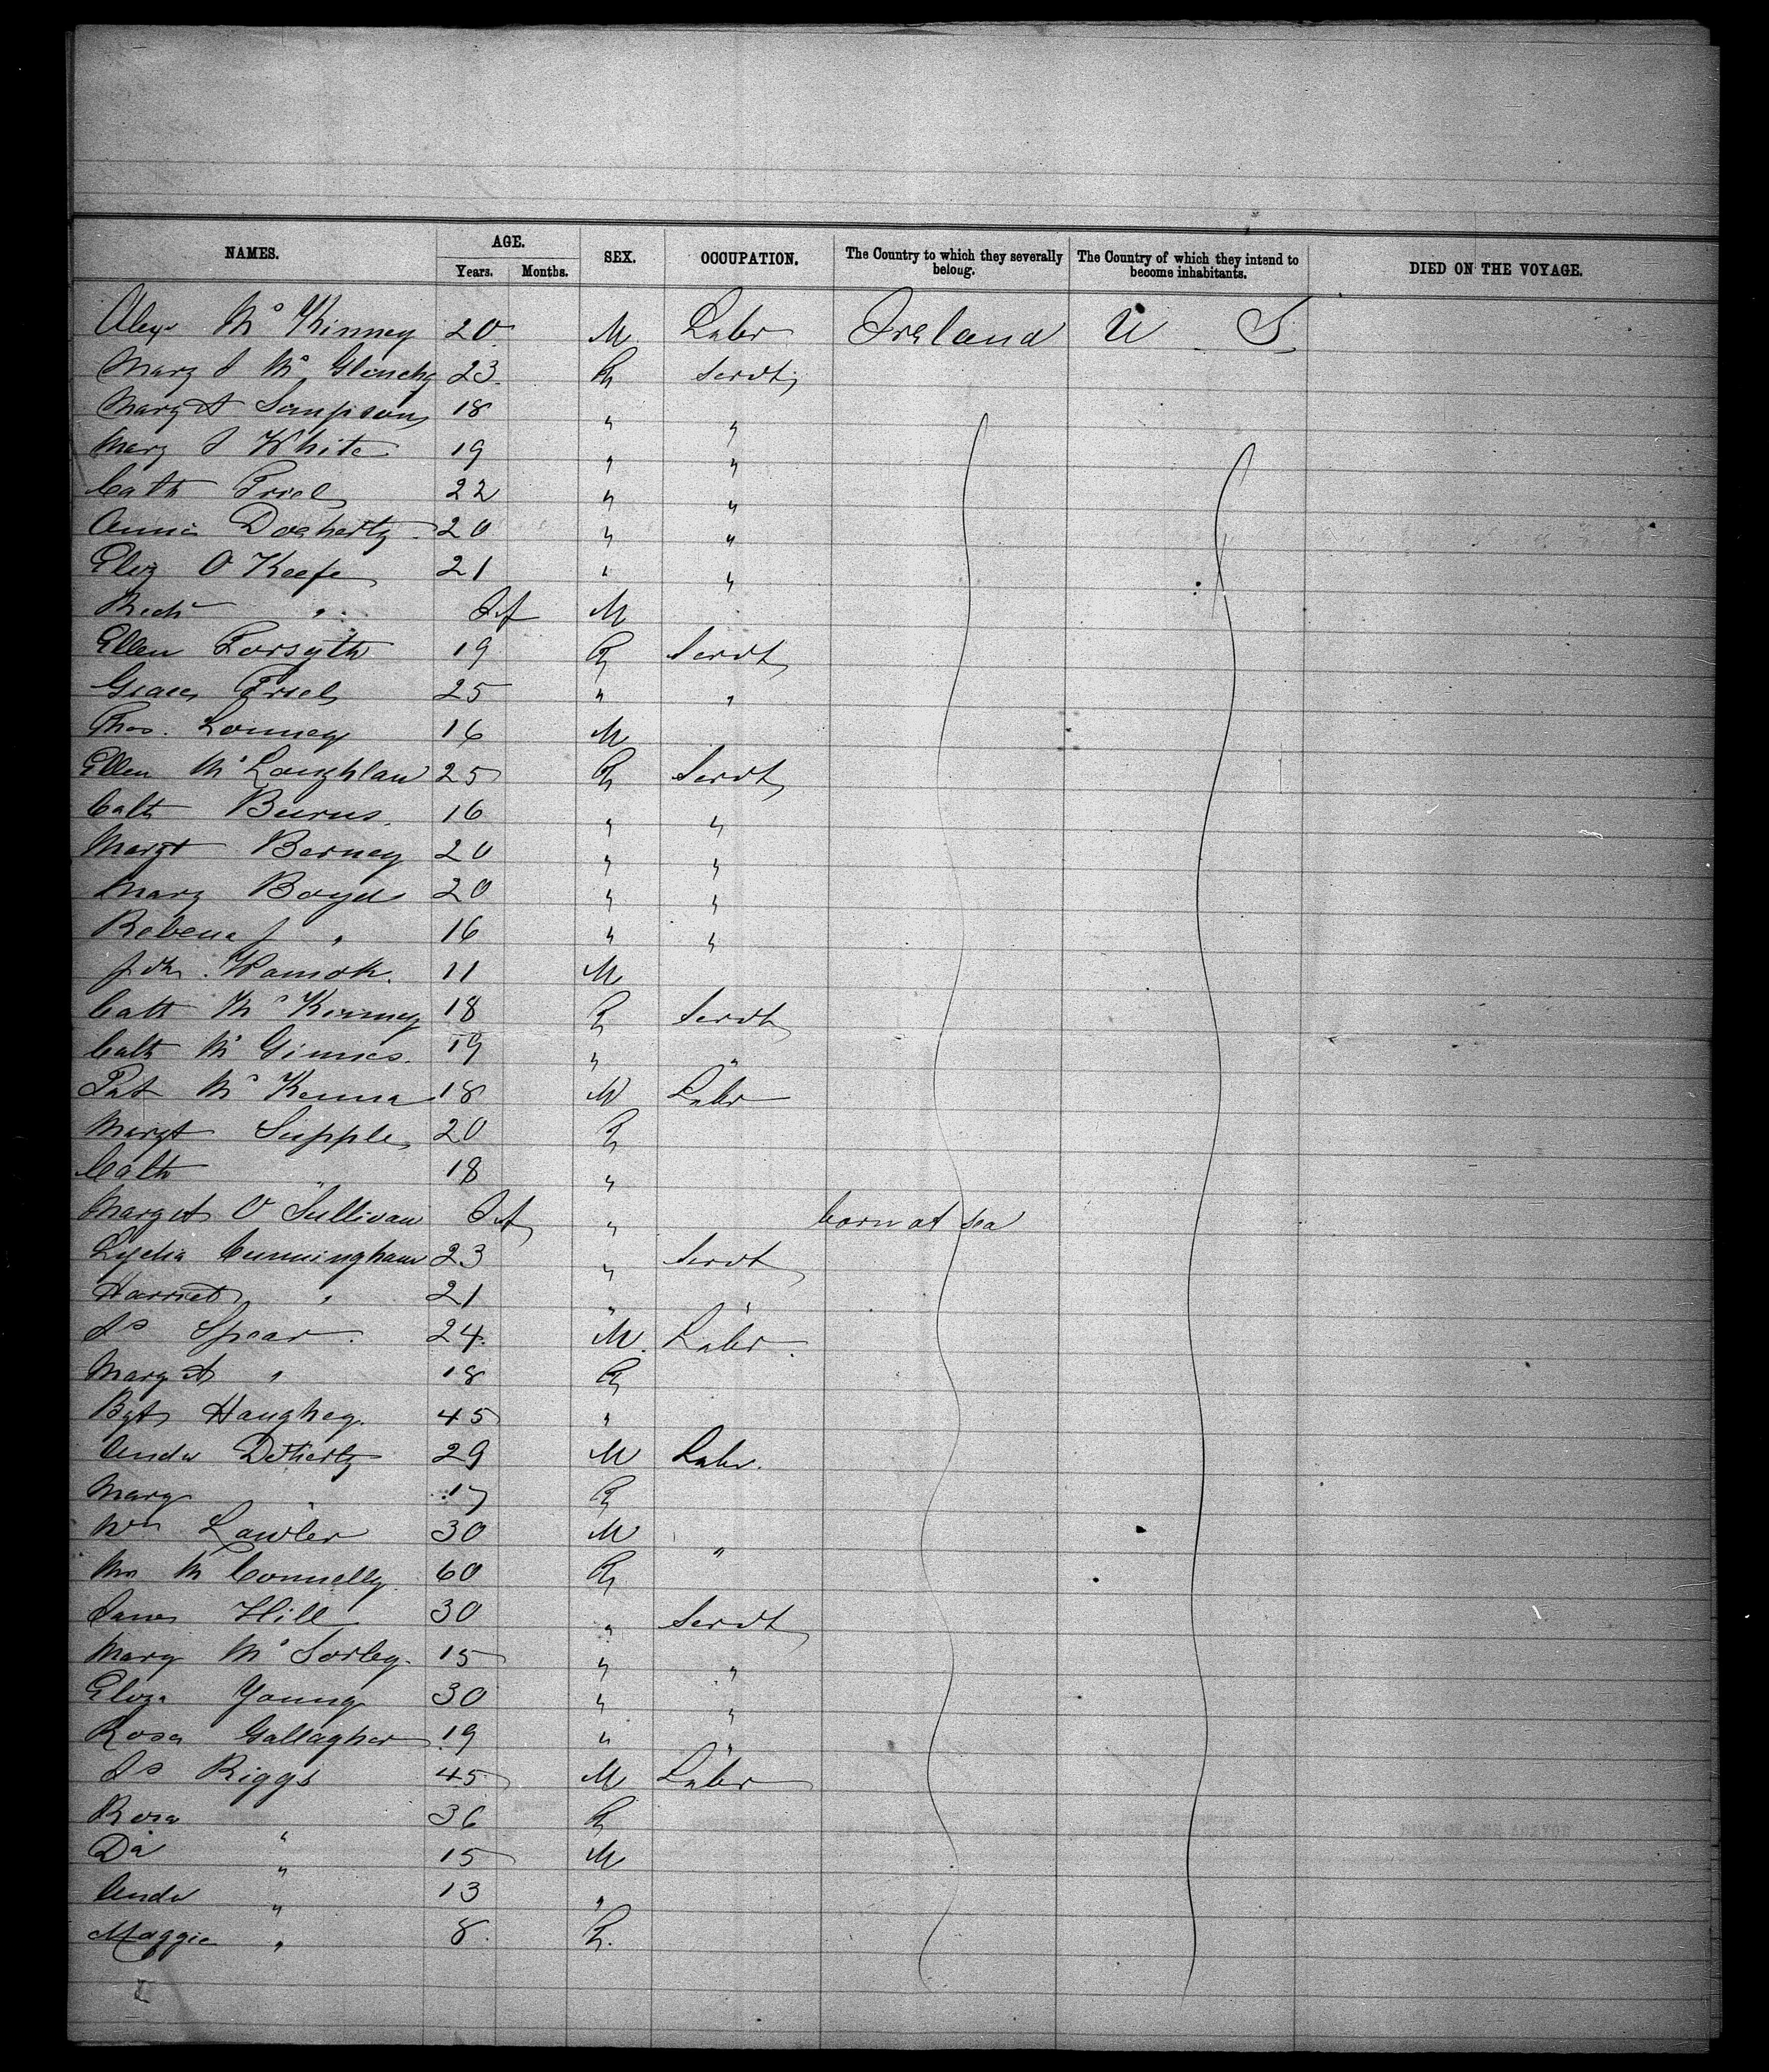 NAMES. AGE. SEX. OCCUPATION. The Country to which they severally belong. The Country of which they intend to become inhabitants. DIED ON THE VOYAGE.
Years. Months.
Alexr McKinney 20 M Labr Ireland U S
Mary J McGlinchy 23 F Servt
Margt Sampson 18 " "
Mary J White 19 " "
Cath Friel 22 " "
Annie Docherty 20 " "
Eliz O'Keefe 21 " "
Richd " Inf M
Ellen Forsyth 19 F Servt
Grace Friel 25 " "
Thos. Lonney 16 M
Ellen McLoughlan 25 F Servt
Cath Burns 16 " "
Margt Berney 20 " "
Mary Boyd 20 " "
Rebena J " 16 " "
Jno. 11 M
Cath McKinney 18 F Servt
Cath McGinnes. 19 " "
Pat McKenna 18 M Labr
Margt Supple 20 F
Cath " 18 "
Margt O'Sullivan Inf " born at sea
Lydia Cunningham 23 " Servt
Harriet " 21 " "
Js Spear 24 M. Labr.
Margt " 18 F
Bgt Haughey. 45 "
Andw Doherty 29 M Labr.
Mary " 17 F
Wm Lawler 30 M "
Mrs M Connelly. 60 F
Jane Hill 30 " Servt
Mary McSorley. 15 " "
Eliza Young 30 " "
Rosa Gallagher 19 " "
Js Riggs 45 M Labr
Rosa " 36 F
Da " 15 M
Andw " 13 "
Maggie " 8. F.